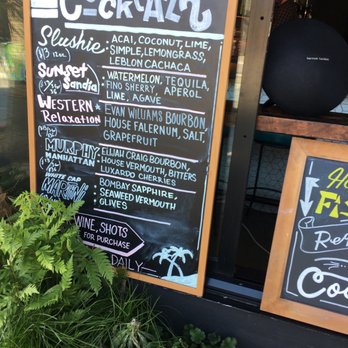 COCKTAILS
Slushie: ACAI, COCONUT, LIME,
$13 12oz. SIMPLE, LEMONGRASS,
LEBLON CACHACA
SUNSET WATERMELON, TEQUILA,
Sandia FINO SHERRY, APEROL
LIME, AGAVE
WESTERN EVAN WILLIAMS BOURBON,
Relaxation HOUSE FALERNUM, SALT,
GRAPEFRUIT
MURPHY ELIJAH CRAIG BOURBON,
MANHATTAN HOUSE VERMOUTH, BITTERS
LUXARDO CHERRIES
WHITE CAP BOMBAY SAPPHIRE,
MARTINI SEAWEED VERMOUTH
OLIVES
WINE, SHOTS
FOR PURCHASE
DAILY
harman kardon